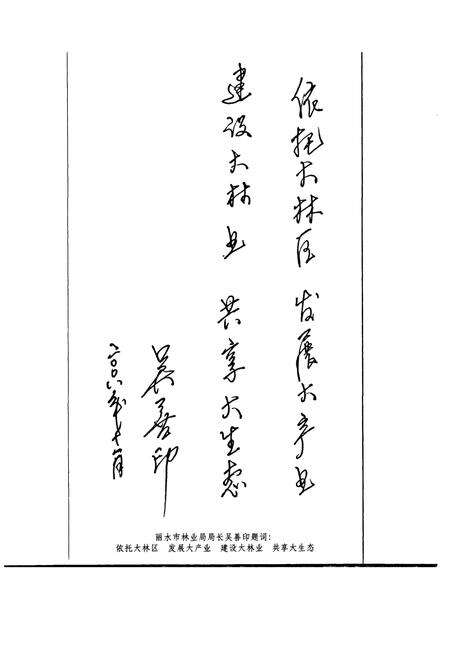 依托大林区 发展大产业
建设大林业 共享大生态
吴善印
二〇〇六年十一月
丽水市林业局局长吴善印题词:
依托大林区 发展大产业 建设大林业 共享大生态